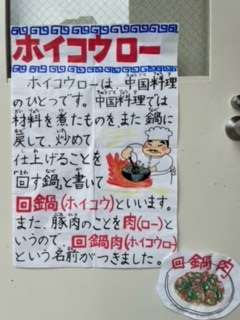 ホイコウロー
ホイコウローは、中国料理
のひとつです。中国料理では、
材料を煮たものをまた鍋に
戻して、炒めて
仕上げることを
回す鍋と書いて
回鍋(ホイコウ)といいます。
また、豚肉のことを肉(ロー)と
いうので、回鍋肉(ホイコウロー)
という名前がつきました。
回鍋肉